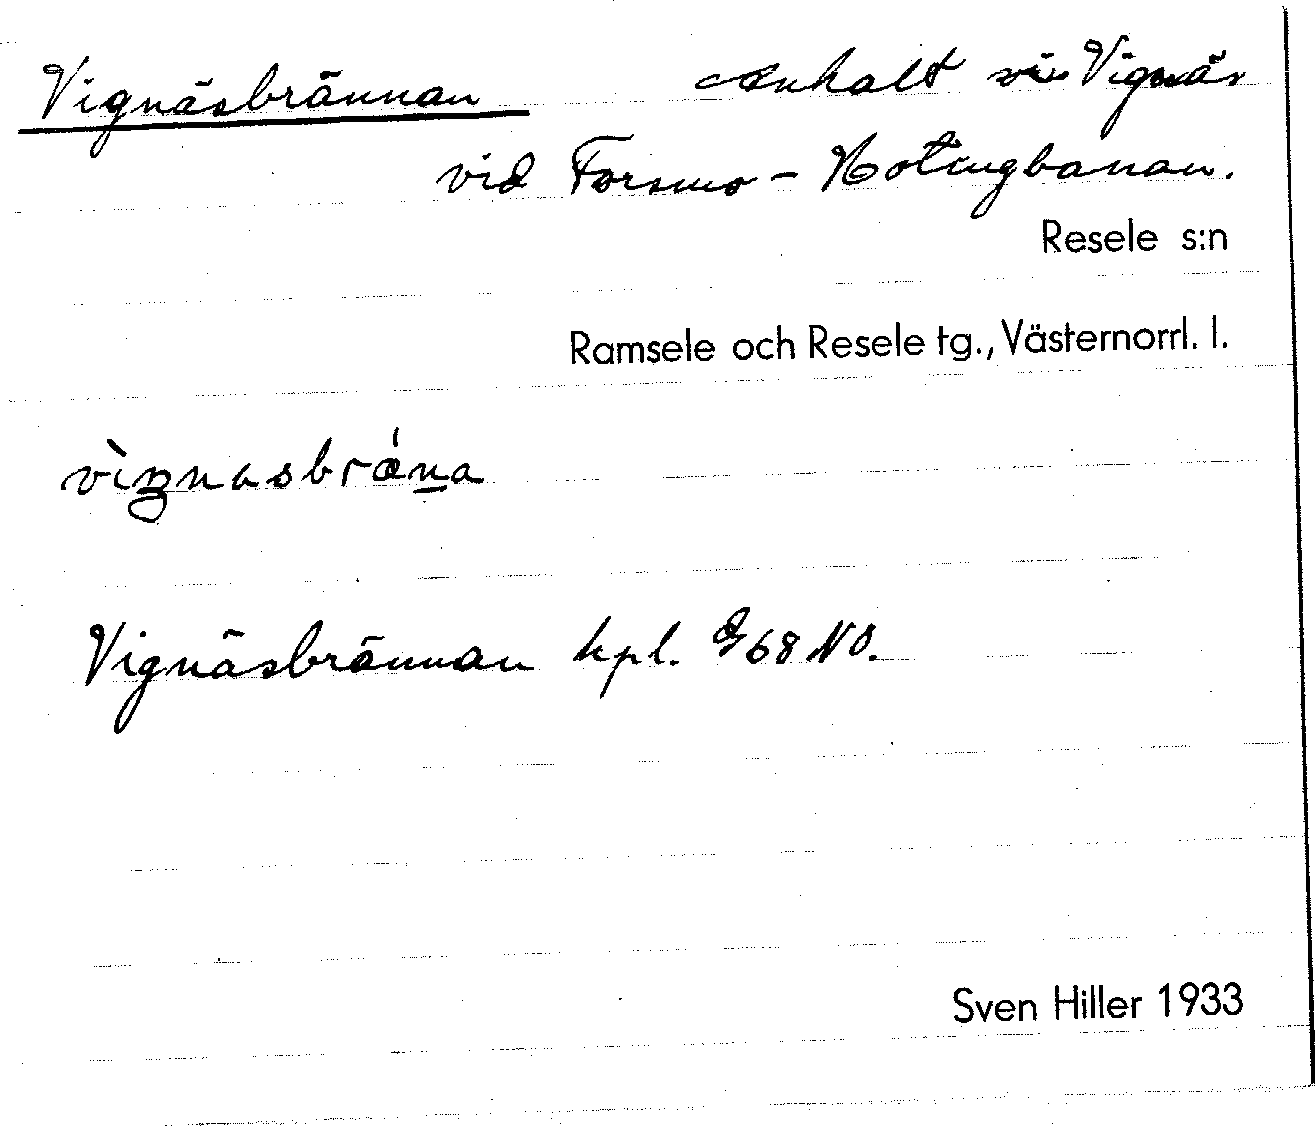 Vignäsbrännan anhalt vid Vignäs
vid Forsmo - Hotingbanan.
Resele s:n
Ramsele och Resele tg., Västernorrl. l.
Vignäsbrännan hpl. G68 NO.
Sven Hiller 1933